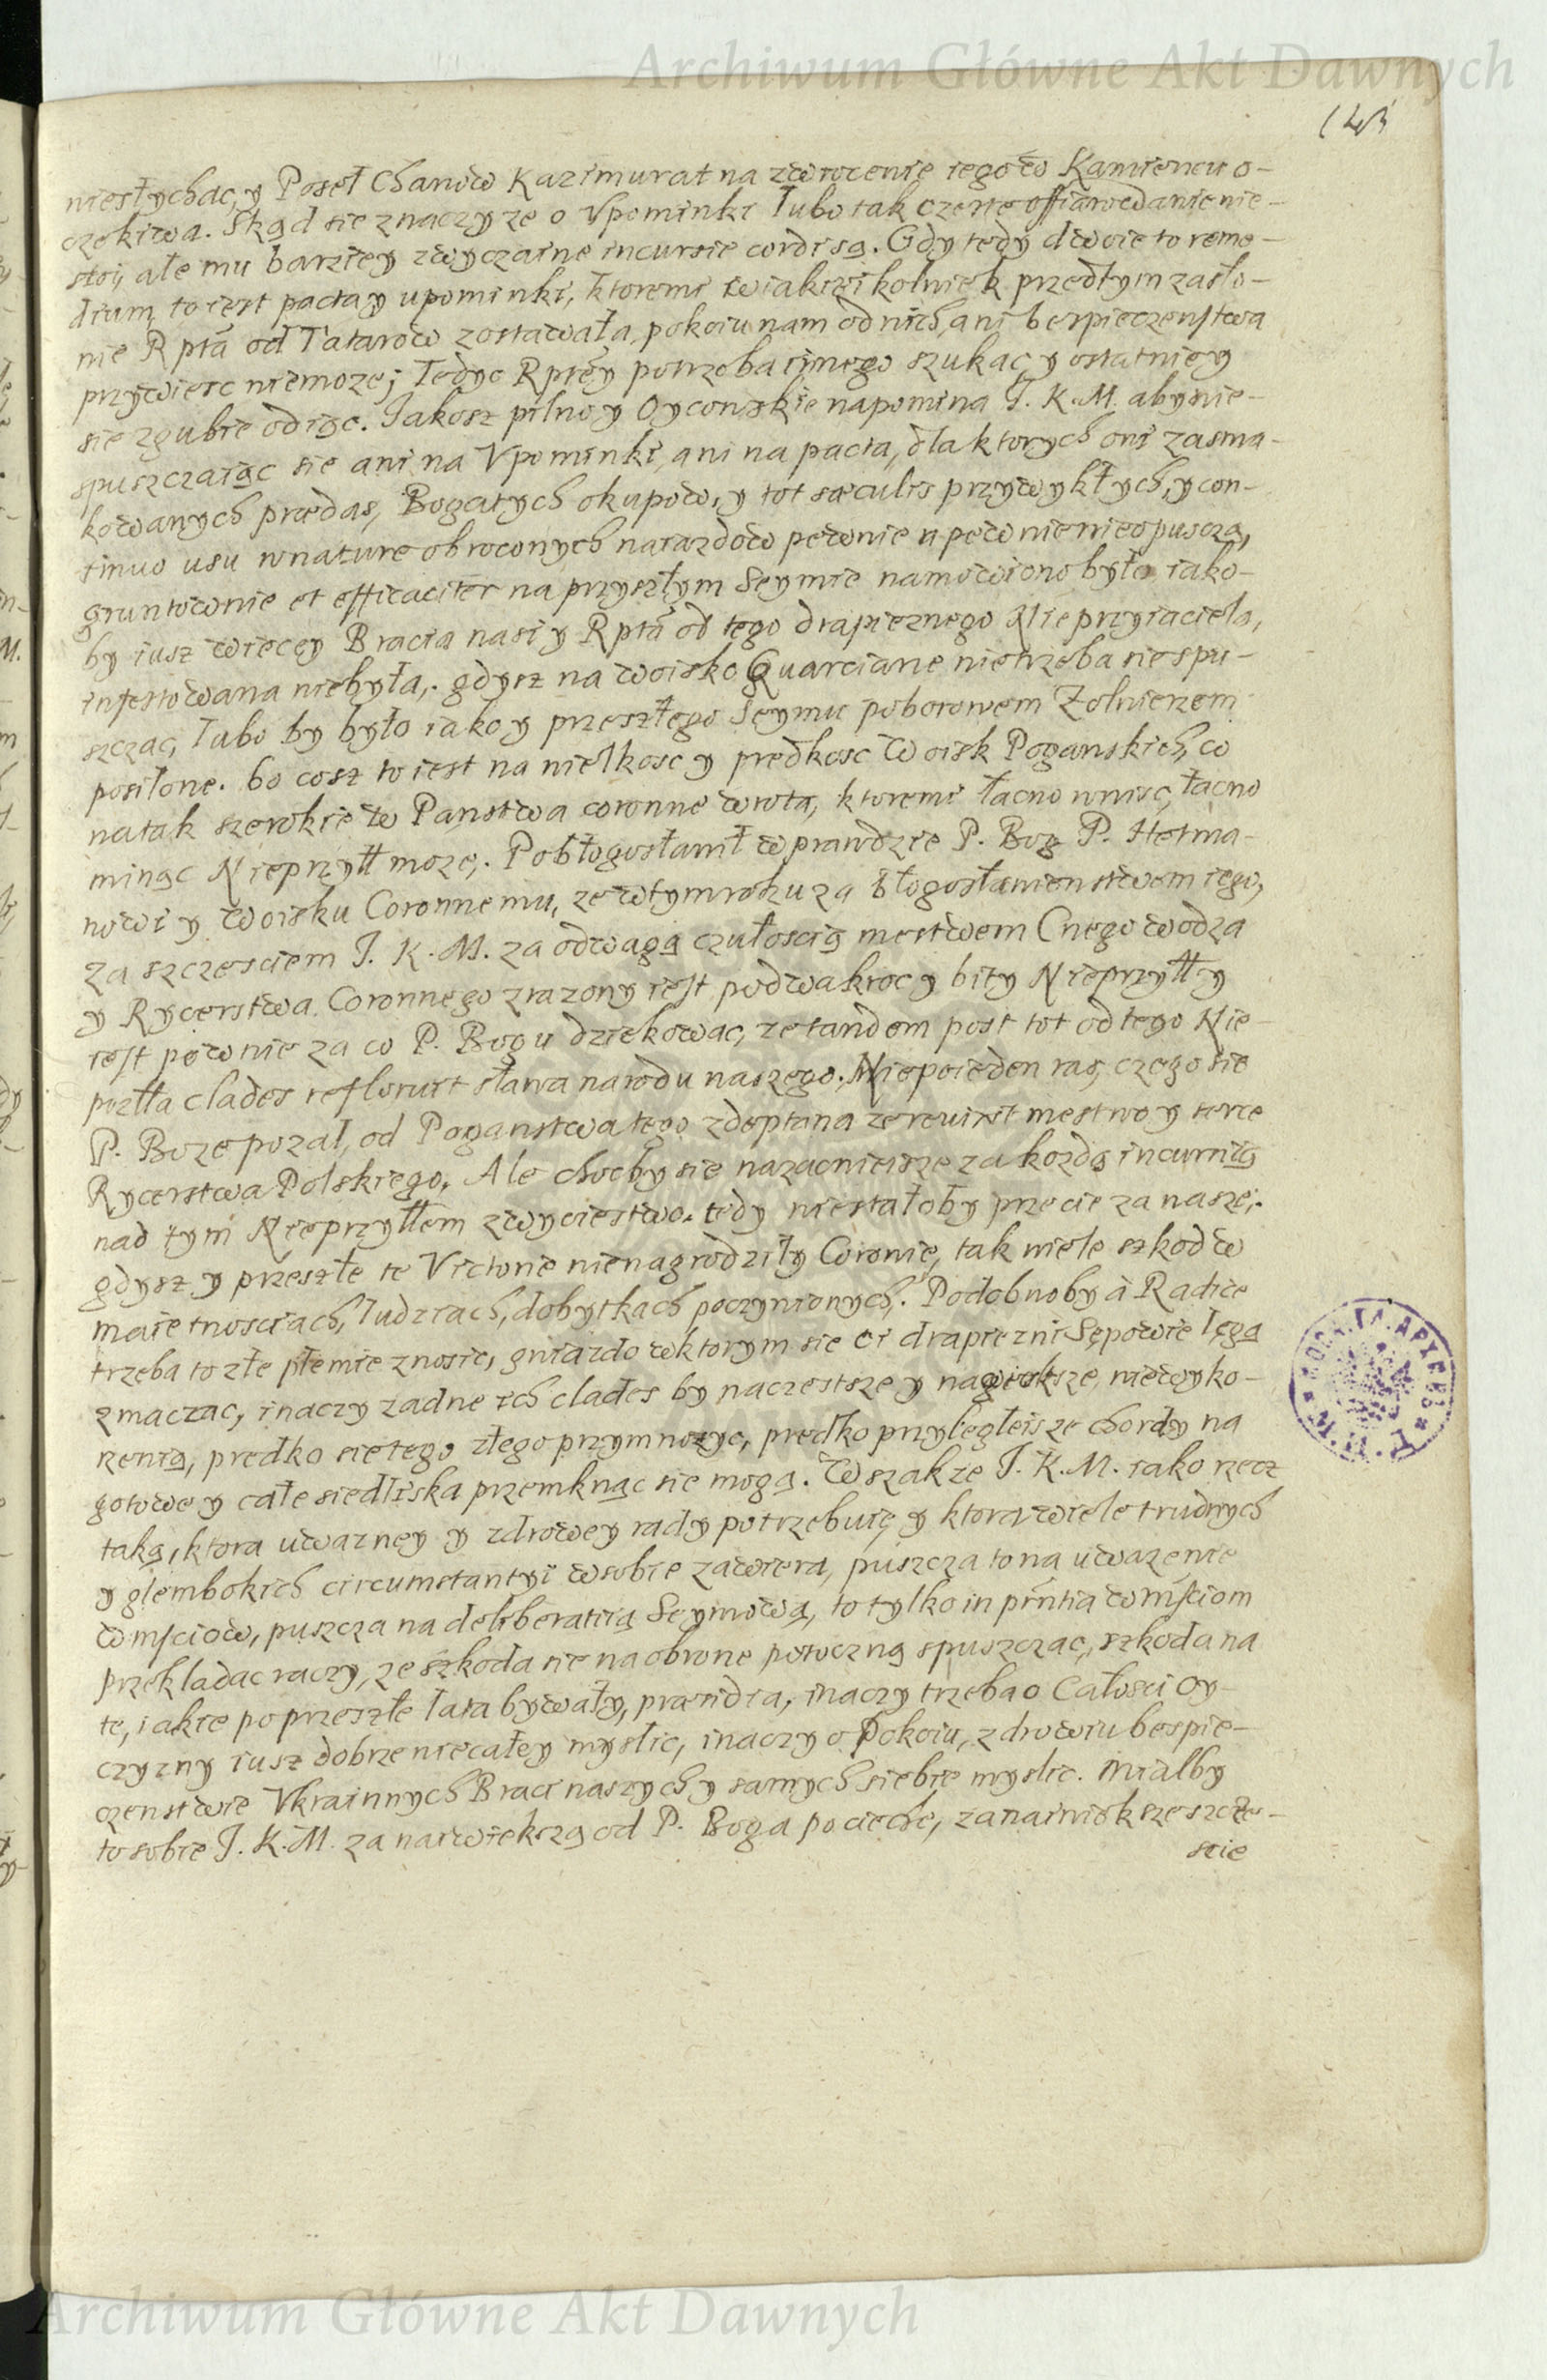 Archiwum Główne Akt Dawnych
niesłychac, y Poseł Chanów Kazimurat na zwrocenie iego w Kamiencu o-
czekiwa. Skąd sie znaczy ze o Vpominki lubo tak czeste offiarowdanie nie-
stoi, ale mu barziey zwyczaine incursie cordi są. Gdy tedy dwoie to reme-
dium, to iest pacta y upominki, ktoremi w iakieikolwiek przedtym zasło-
nie Rptã od Tatarów zostawała, pokoiu nam od nich, ani bespieczenstwa
przywiesc niemoze; Tedyc Rptēy potrzeba innego szukac, y ostatniey
sie zgubie odiąc. Iakosz pilno y Oyconskie napomina J. K. M. aby nie-
spuszczaiąc sie ani na Vpominki, ani na pacta, dla ktorych oni zasma-
kowanych prædas, Bogatych okupow, y tot sæculis przywykłych, y con-
tinuo usu wnature obroconych narazdow pewnie u pewnie nieopuszczą,
gruntownie et efficaciter na przyszłym Seymie namowiono było iako-
by iusz więcey Bracia nasi y Rptã od tego drapieznego Nieprzyiaciela,
infestowana niebyła,. gdysz na woisko Quarciane nietrzeba sie spu-
szczac, lubo by było iako y przeszłego Seymu poborowem Zolnierzem
posilone. bo cosz to iest na wielkosc y prędkosc Woisk Poganskich, co
na tak szerokie w Panstwa coronne wrota, ktoremi łacno wnisc, łacno
minąc Nieprzyłł moze,. Pobłogosławił wprawdzie P. Bog P. Hetma-
nowi y Woisku Coronnemu, ze wtym roku za błogosławienstwem iego,
za szczesciem J. K. M. za odwagą czułoscią mestwem Cnego wodza
y Rycerstwa Coronnego zrazony iest podwakroc y bity Nieprzyłł y
iest pewnie za co P. Bogu dziekowac, ze tandem post tot od tego Nie-
przłła clades refloruit sława narodu naszego. Niepoieden raz, czego sie
P. Boze pozal, od Poganstwa tego zdeptana ze revixit mestwo y serce
Rycerstwa Polskiego. Ale chocby sie nazacnieisze za kozdą incursią
nad tym Nieprzyłłem zwyciestwo. tedy niestałoby przecie za nasze,.
gdysz y przeszłe te Victorie nienagrodziły Coronie, tak wiele szkod w
maietnosciach, ludziach, dobytkach poczynionych,. Podobnoby à Radice
trzeba to złe plemie znosic, gniazdo wktorym sie ci drapiezni Sępowie lęgą
zmaczac, inaczy zadne ich clades by naczestsze y nawieksze, niewyko-
renią, predko sie tego złego przymnozyc, predko przyległeisze hordy na
gotowe y całe siedliska przemknąc sie mogą. Wszakze J. K. M. iako rzecz
taką, ktora uwazney y zdrowey rady potrzebuię y ktora wiele trudnych
y glembokich circumstantyi wsobie zawiera, puszcza to na uwazenie
Wmsciow, puszcza na deliberatią Seymową, to tylko in prñtia Wmściom
przekladac raczy, ze szkoda sie na obrone potoczną spuszczac, szkoda na
te, iakie po przeszłe lata bywały, præsidia, inaczy trzeba o Całosci Oy-
czyzny iusz dobrze niecałey myslic, inaczy o Pokoiu, zdrowiu bespie-
czenstwie Vkrainnych Braci naszych y samych siebie myslic. Miałby
to sobie J. K. M. za naiwiekszą od P. Boga pocieche, za naiwiększe szcze-
scie
Archiwum Główne Akt Dawnych